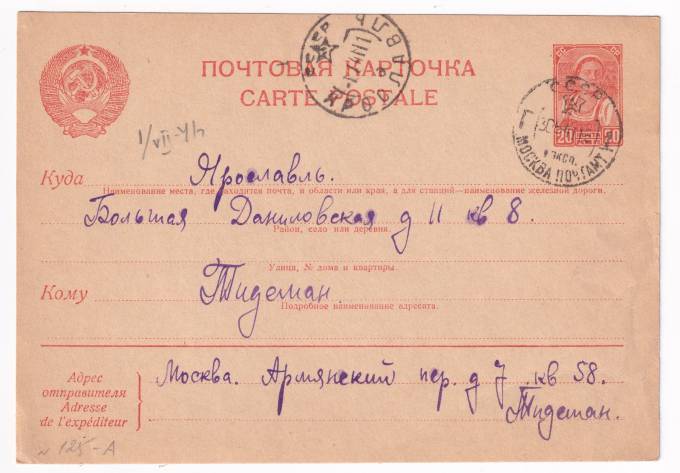 ПОЧТОВАЯ КАРТОЧКА
CARTE POSTALE
СССР
ЯРОСЛАВЛЬ
СССР
МОСКВА ПОЧТАМТ
20 20
1/VII-41
Куда Ярославль.
Наименование места, где находится почта, и области или края, а для станций—наименование железной дороги.
Большая Даниловская д 11 кв 8.
Район, село или деревня.
Улица, № дома и квартиры.
Кому Тидеман.
Подробное наименование адресата.
Адрес отправителя
Adresse de l'expéditeur
Москва. Армянский пер. д 7 кв 58.
Тидеман.
№ 125-А